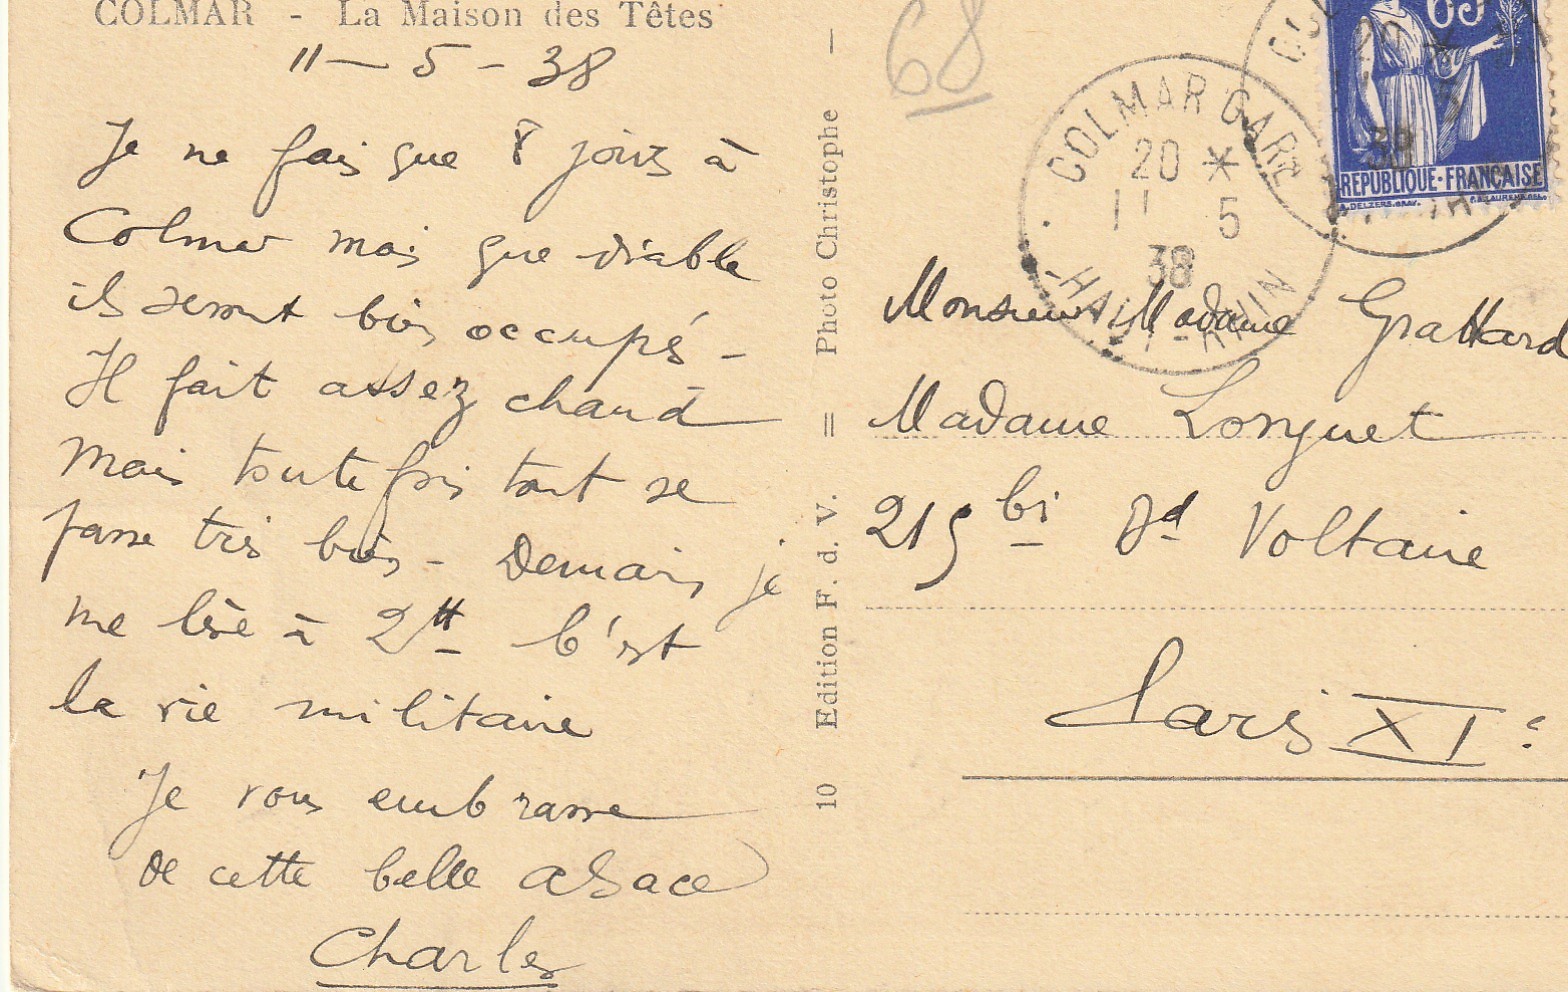 COLMAR - La Maison des Têtes
11 - 5 - 38
Je ne fais que 8 jours à
Colmar mais que diable
ils seront bien occupés -
Il fait assez chaud
mais toutefois tout se
passe très bien - Demain je
me lève à 2H C'est
la vie militaire
Je vous embrasse
de cette belle alsace
Charles
10 Edition F. d. V. = Photo Christophe -
68
COLMAR GARE
20 *
11 5
38
HAUT-RHIN
65
20 *
5
38
REPUBLIQUE·FRANÇAISE
Monsieur Madame Grattard
Madame Longuet
215 bis Bd Voltaire
Paris XIe